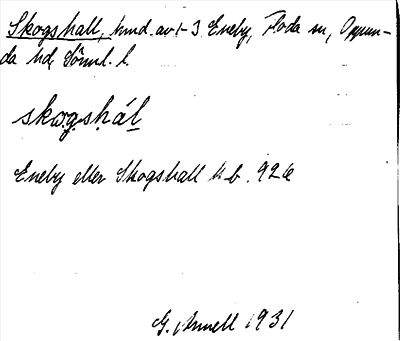 Skogshall, hmd. av 1-3 Eneby, Floda sn, Oppun-
da hd, Söml. l.
skogshál
Eneby eller Skogshall h b. 926
G. 1931